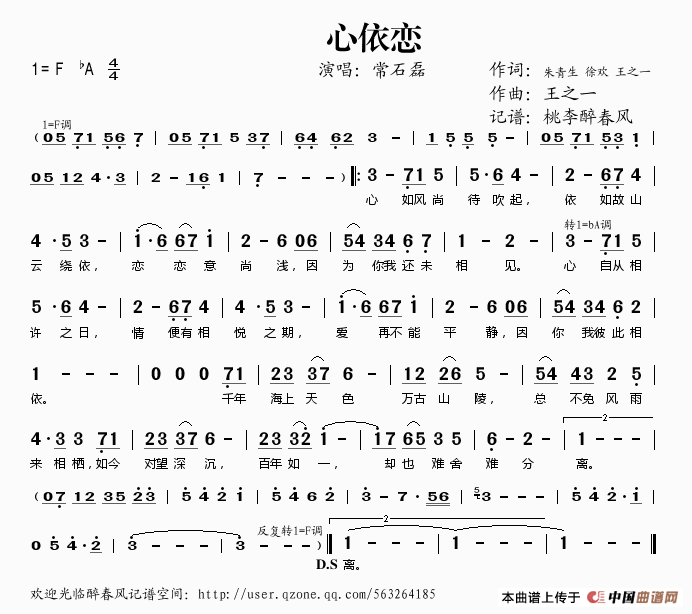 心依恋
1=F ♭A 4/4
演唱：常石磊
作词：朱青生 徐欢 王之一
作曲：王之一
记谱：桃李醉春风
1=F调
（05 71 56 7 | 05 71 5 37 | 64 62 3 - | 1 5 5 5 - | 05 71 53 1 |
05 12 4·3 | 2 - 16 1 | 7 - - - ）‖: 3 - 71 5 | 5·6 4 - | 2 - 67 4 |
心 如风尚 待 吹起， 依 如故山
转1=bA调
4·5 3 - | 1·6 67 1 | 2 - 6 06 | 54 34 6 7 | 1 - 2 - | 3 - 71 5 |
云绕依， 恋 恋意 尚 浅，因 为 你我还未 相 见。 心 自从相
5·6 4 - | 2 - 67 4 | 4·5 3 - | 1·6 67 1 | 2 - 6 06 | 54 34 6 2 |
许 之日， 情 便有相 悦之期， 爱 再不能 平 静，因 你 我彼此相
1 - - - | 0 0 0 71 | 23 37 6 - | 12 26 5 - | 54 43 2 5 |
依。 千年 海上 天 色 万古 山 陵， 总 不免 风 雨
2
4·3 3 71 | 23 37 6 - | 23 32 1 - | 17 65 3 5 | 6 - 2 - | 1 - - - |
来 相栖，如今 对望 深 沉， 百年 如 一， 却也 难舍 难 分 离。
（07 12 35 23 | 5 4 2 1 | 5 4 6 2 | 3 - 7·56 | 3 - - - | 5 4 2·1 |
反复转1=F调
2
0 5 4·2 | 3 - - - | 3 - - - ）‖ 1 - - - | 1 - - - | 1 - - - ‖
D.S 离。
欢迎光临醉春风记谱空间：http://user.qzone.qq.com/563264185
本曲谱上传于 中国曲谱网